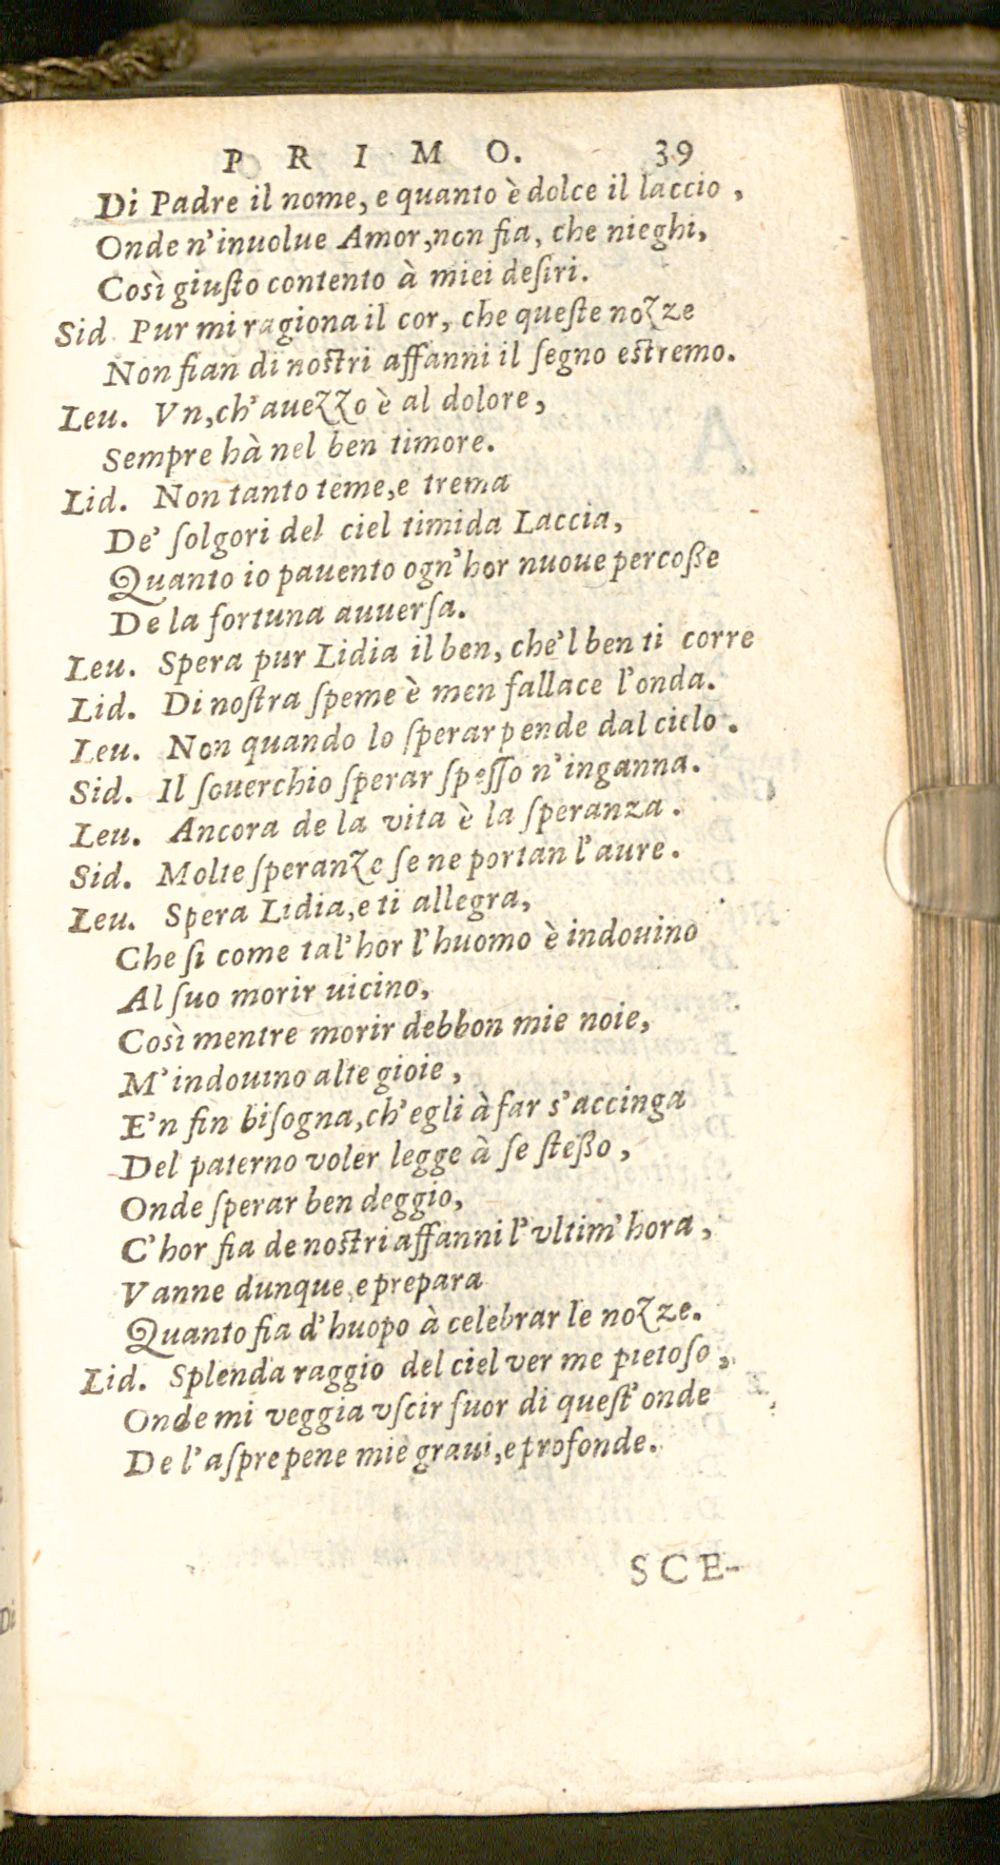 PRIMO. 39
Di Padre il nome, e quanto è dolce il laccio,
Onde n'inuolue Amor, non fia, che nieghi,
Così giuſto contento à miei deſiri.
Sid. Pur mi ragiona il cor, che queſte nozze
Non fian di noſtri affanni il ſegno eſtremo.
Leu. Vn, ch'auezzo è al dolore,
Sempre hà nel ben timore.
Lid. Non tanto teme, e trema
De' ſolgori del ciel timida Laccia,
Quanto io pauento ogn'hor nuoue percoſſe
De la fortuna auuerſa.
Leu. Spera pur Lidia il ben, che'l ben ti corre
Lid. Di noſtra ſpeme è men fallace l'onda.
Leu. Non quando lo ſperar pende dal cielo.
Sid. Il ſouerchio ſperar ſpeſſo n'inganna.
Leu. Ancora de la vita è la ſperanza.
Sid. Molte ſperanze ſe ne portan l'aure.
Leu. Spera Lidia, e ti allegra,
Che ſi come tal'hor l'huomo è indouino
Al ſuo morir uicino,
Così mentre morir debbon mie noie,
M'indouino alte gioie,
E'n fin biſogna, ch'egli à far s'accinga
Del paterno voler legge à ſe ſteſſo,
Onde ſperar ben deggio,
C'hor fia de noſtri affanni l'vltim'hora,
Vanne dunque, e prepara
Quanto fia d'huopo à celebrar le nozze.
Lid. Splenda raggio del ciel ver me pietoſo,
Onde mi veggia vſcir fuor di queſt'onde
De l'aſpre pene mie graui, e profonde.
SCE-